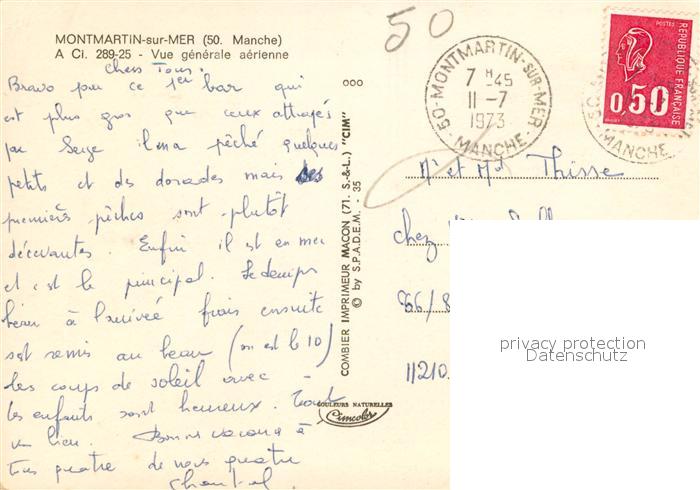 MONTMARTIN-sur-MER (50. Manche)
A Ci. 289-25 - Vue générale aérienne
chers Tous,
Bravo pour ce 1er bar qui
est plus gros que ceux attrapés
par Serge il m'a pêché quelques
petits et des dorades mais ses
premières pêches sont plutôt
décevantes. Enfin il est en mer
et c'est le principal. Le temps
beau à l'arrivée frais ensuite
s'est remis au beau (on est le 10)
les coups de soleil avec -
les enfants sont heureux. Tout
va bien. Bonnes vacances à
tous quatre de nous quatre
Chantal
ooo
COMBIER IMPRIMEUR MACON (71. S.-&-L.) "CIM"
© by S.P.A.D.E.M. - 35
COULEURS NATURELLES
Cimcolor
50
50-MONTMARTIN-SUR-MER
7 H 45
11-7
1973
MANCHE
POSTES
RÉPUBLIQUE FRANÇAISE
0,50
50
MANCHE
Mr et Md Thisse
chez
66/8
11210.
privacy protection
Datenschutz